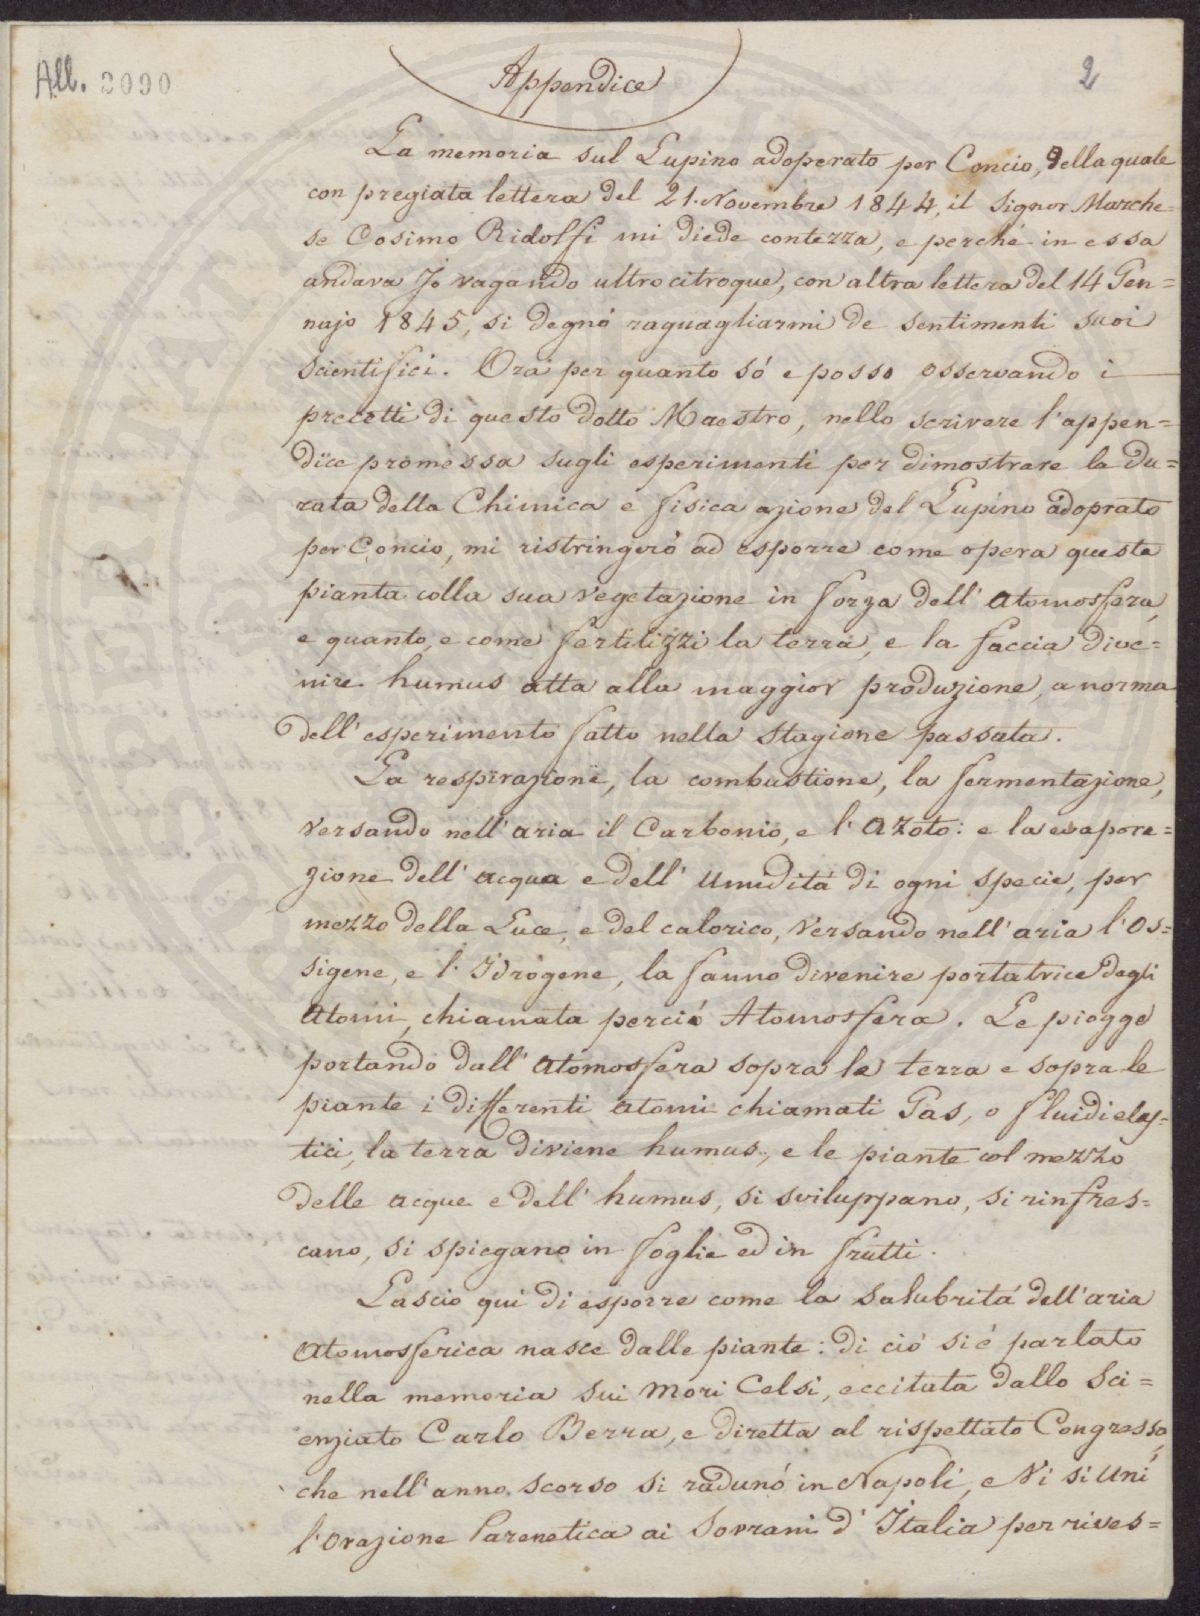 All. 2090
Appendice
2
La memoria sul Lupino adoperato per Concio, della quale
con pregiata lettera del 21. Novembre 1844, il Signor Marche=
se Cosimo Ridolfi mi diede contezza, e perché in essa
andava Jo vagando ultro citroque, con altra lettera del 14 Gen=
najo 1845, si degnó raguagliarmi de sentimenti suoi
scientifici. Ora per quanto só e posso osservando i
precetti di questo dotto Maestro, nello scrivere l'appen=
dice promessa sugli esperimenti per dimostrare la du=
rata della Chimica e fisica azione del Lupino adoprato
per Concio, mi ristringeró ad esporre come opera questa
pianta colla sua vegetazione in forza dell'atomosfera,
e quanto, e come fertilizzi la terra, e la faccia dive=
nire humus atta alla maggior produzione, a norma
dell'esperimento fatto nella stagione passata.
La respirazione, la combustione, la fermentazione,
versando nell'aria il Carbonio, e l'Azoto: e la evapore=
zione dell'acqua e dell'Umiditá di ogni specie, per
mezzo della Luce, e del calorico, versando nell'aria l'Os=
sigene, e l'Idrogene, la fanno divenire portatrice degli
Atomi, chiamata perció Atomosfera. Le piogge
portando dall'atomosfera sopra la terra e sopra le
piante i differenti atomi chiamati Gas, o fluidi elas=
tici, la terra diviene humus, e le piante col mezzo
delle acque e dell'humus, si sviluppano, si rinfres=
cano, si spiegano in foglie ed in frutti.
Lascio qui di esporre come la salubritá dell'aria
Atomosferica nasce dalle piante: di ció si é parlato
nella memoria sui Mori Celsi, eccitata dallo Sci=
enziato Carlo Berra, e diretta al rispettato Congresso,
che nell'anno scorso si radunó in Napoli, e Vi si uní
l'Orazione Parenetica ai Sovrani d'Italia per rives=